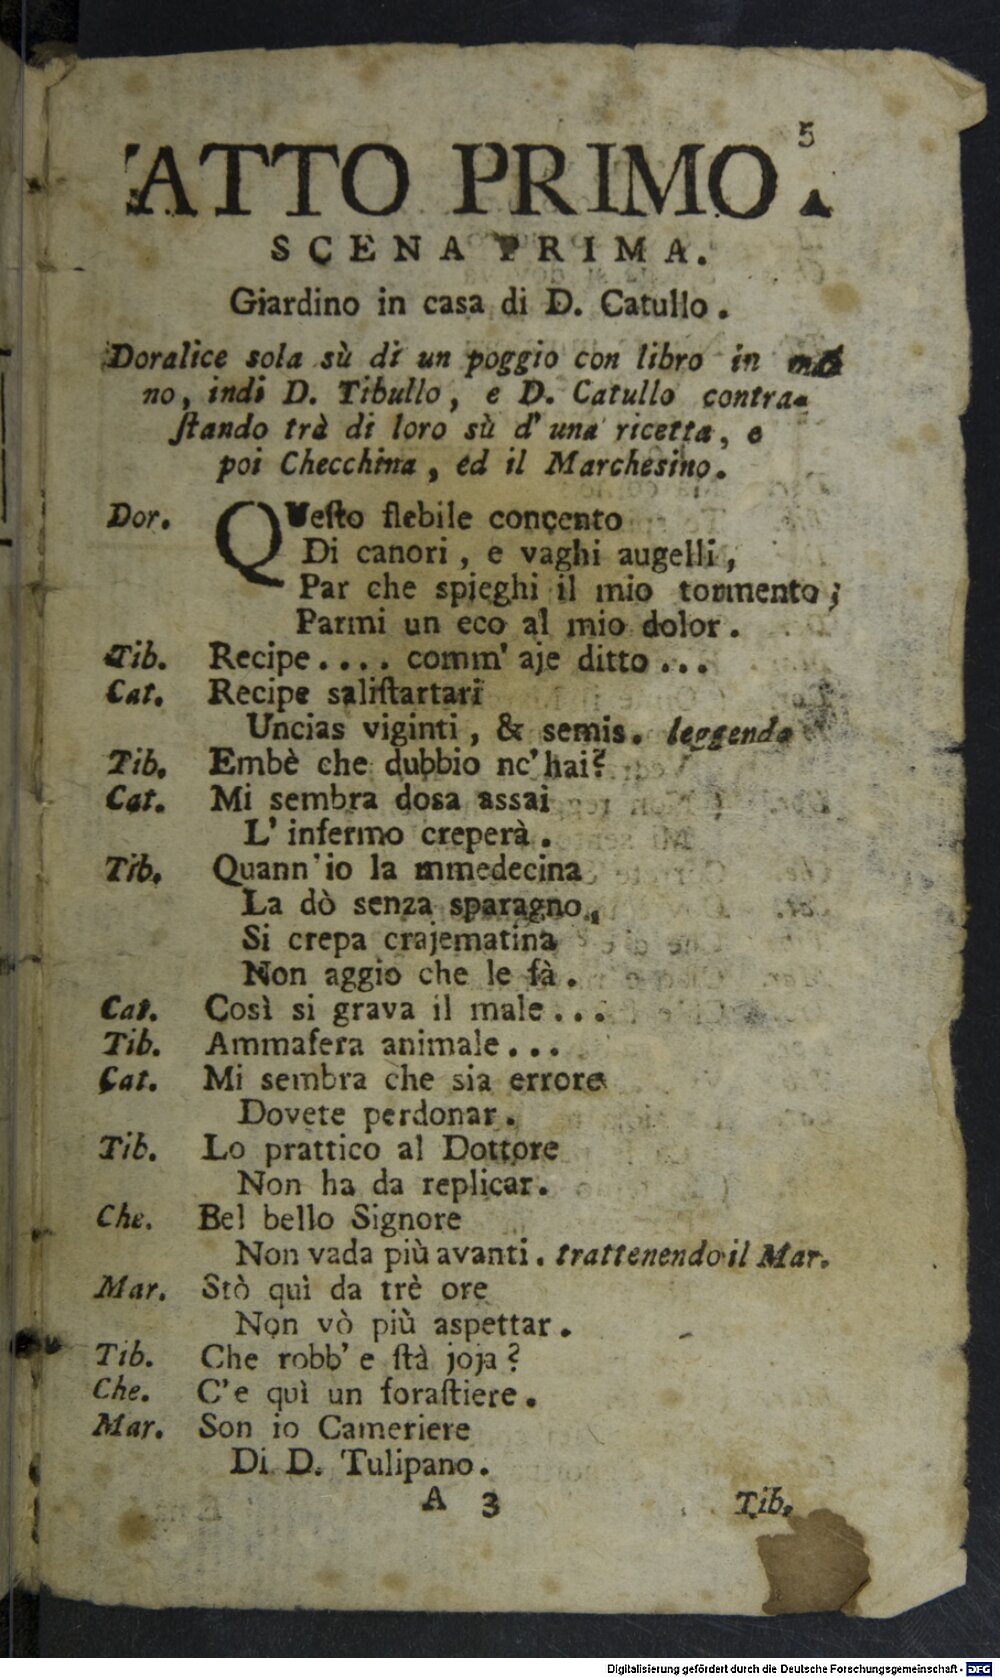 5
ATTO PRIMO.
SCENA PRIMA.
Giardino in casa di D. Catullo.
Doralice sola sù di un poggio con libro in ma
no, indi D. Tibullo, e D. Catullo contra-
ſtando trà di loro sù d' una ricetta, e
poi Checchina, ed il Marchesino.
Dor. QUeſto flebile concento
Di canori, e vaghi augelli,
Par che spieghi il mio tormento;
Parmi un eco al mio dolor.
Tib. Recipe.... comm' aje ditto...
Cat. Recipe saliſtartari
Uncias viginti, & semis. leggendo
Tib. Embè che dubbio nc' hai?
Cat. Mi sembra dosa assai
L' infermo creperà.
Tib. Quann' io la mmedecina
La dò senza sparagno,
Si crepa crajematina
Non aggio che le fà.
Cat. Così si grava il male...
Tib. Ammafera animale...
Cat. Mi sembra che sia errore
Dovete perdonar.
Tib. Lo prattico al Dottore
Non ha da replicar.
Che. Bel bello Signore
Non vada più avanti. trattenendo il Mar.
Mar. Stò quì da trè ore
Non vò più aspettar.
Tib. Che robb' e ſtà joja?
Che. C'e quì un foraſtiere.
Mar. Son io Cameriere
Di D. Tulipano.
A 3 Tib.
Digitalisierung gefördert durch die Deutsche Forschungsgemeinschaft - DFG